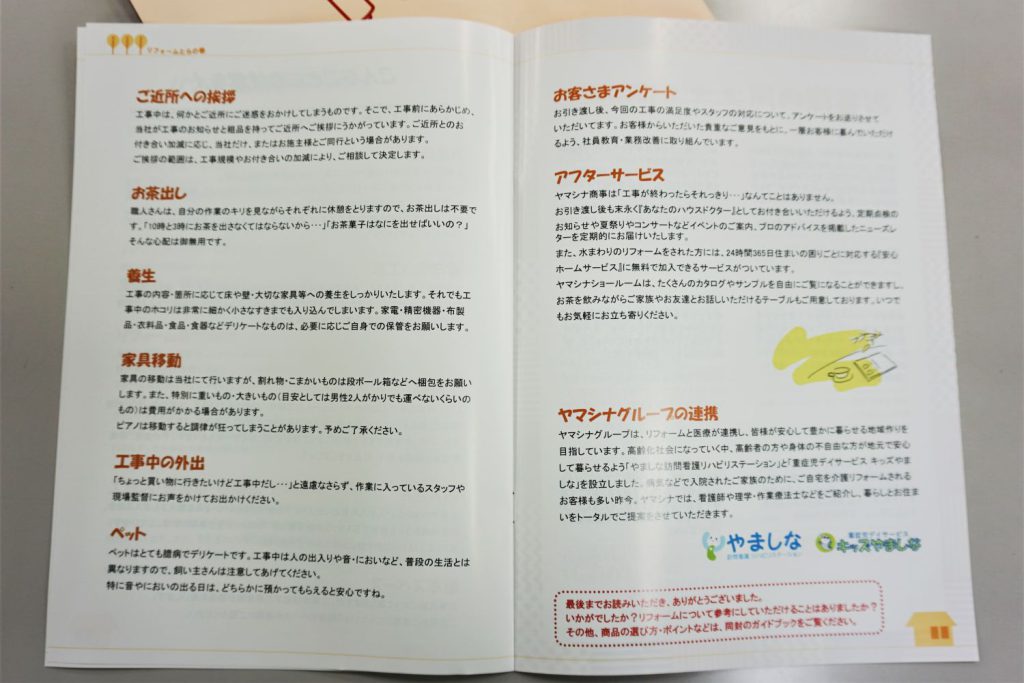 リフォームとらの巻
ご近所への挨拶
工事中は、何かとご近所にご迷惑をおかけしてしまうものです。そこで、工事前にあらかじめ、
当社が工事のお知らせと粗品を持ってご近所へご挨拶にうかがっています。ご近所とのお
付き合い加減に応じ、当社だけ、またはお施主様とご同行という場合があります。
ご挨拶の範囲は、工事規模やお付き合いの加減により、ご相談して決定します。
お茶出し
職人さんは、自分の作業のキリを見ながらそれぞれに休憩をとりますので、お茶出しは不要で
す。「10時と3時にお茶を出さなくてはならないから…」「お茶菓子はなにを出せばいいの？」
そんな心配は御無用です。
養生
工事の内容・箇所に応じて床や壁・大切な家具等への養生をしっかりいたします。それでも工
事中のホコリは非常に細かく小さなすきまでも入り込んでしまいます。家電・精密機器・布製
品・衣料品・食品・食器などデリケートなものは、必要に応じご自身での保管をお願いします。
家具移動
家具の移動は当社にて行いますが、割れ物・こまかいものは段ボール箱などへ梱包をお願い
します。また、特別に重いもの・大きいもの（目安としては男性2人がかりでも運べないくらいの
もの）は費用がかかる場合があります。
ピアノは移動すると調律が狂ってしまうことがあります。予めご了承ください。
工事中の外出
「ちょっと買い物に行きたいけど工事中だし…」と遠慮なさらず、作業に入っているスタッフや
現場監督にお声をかけてお出かけください。
ペット
ペットはとても臆病でデリケートです。工事中は人の出入りや音・においなど、普段の生活とは
異なりますので、飼い主さんは注意してあげてください。
特に音やにおいの出る日は、どちらかに預かってもらえると安心ですね。
お客さまアンケート
お引き渡し後、今回の工事の満足度やスタッフの対応について、アンケートをお送りさせて
いただいてます。お客様からいただいた貴重なご意見をもとに、一層お客様に喜んでいただけ
るよう、社員教育・業務改善に取り組んでいます。
アフターサービス
ヤマシナ商事は「工事が終わったらそれっきり…」なんてことはありません。
お引き渡し後も末永く『あなたのハウスドクター』としてお付き合いいただけるよう、定期点検の
お知らせや夏祭りやコンサートなどイベントのご案内、プロのアドバイスを掲載したニューズレ
ターを定期的にお届けいたします。
また、水まわりのリフォームをされた方には、24時間365日住まいの困りごとに対応する『安心
ホームサービス』に無料で加入できるサービスがついています。
ヤマシナショールームは、たくさんのカタログやサンプルを自由にご覧になることができますし、
お茶を飲みながらご家族やお友達とお話しいただけるテーブルもご用意しております。いつで
もお気軽にお立ち寄りください。
ヤマシナグループの連携
ヤマシナグループは、リフォームと医療が連携し、皆様が安心して豊かに暮らせる地域作りを
目指しています。高齢化社会になっていく中、高齢者の方や身体の不自由な方が地元で安心
して暮らせるよう「やましな訪問看護リハビリステーション」と「重症児デイサービス キッズやま
しな」を設立しました。病気などで入院されたご家族のために、ご自宅を介護リフォームされる
お客様も多い昨今、ヤマシナでは、看護師や理学・作業療法士などをご紹介し、暮らしとお住ま
いをトータルでご提案をさせていただきます。
やましな
訪問看護 リハビリステーション
重症児デイサービス
キッズやましな
最後までお読みいただき、ありがとうございました。
いかがでしたか？リフォームについて参考にしていただけることはありましたか？
その他、商品の選び方・ポイントなどは、同封のガイドブックをご覧ください。